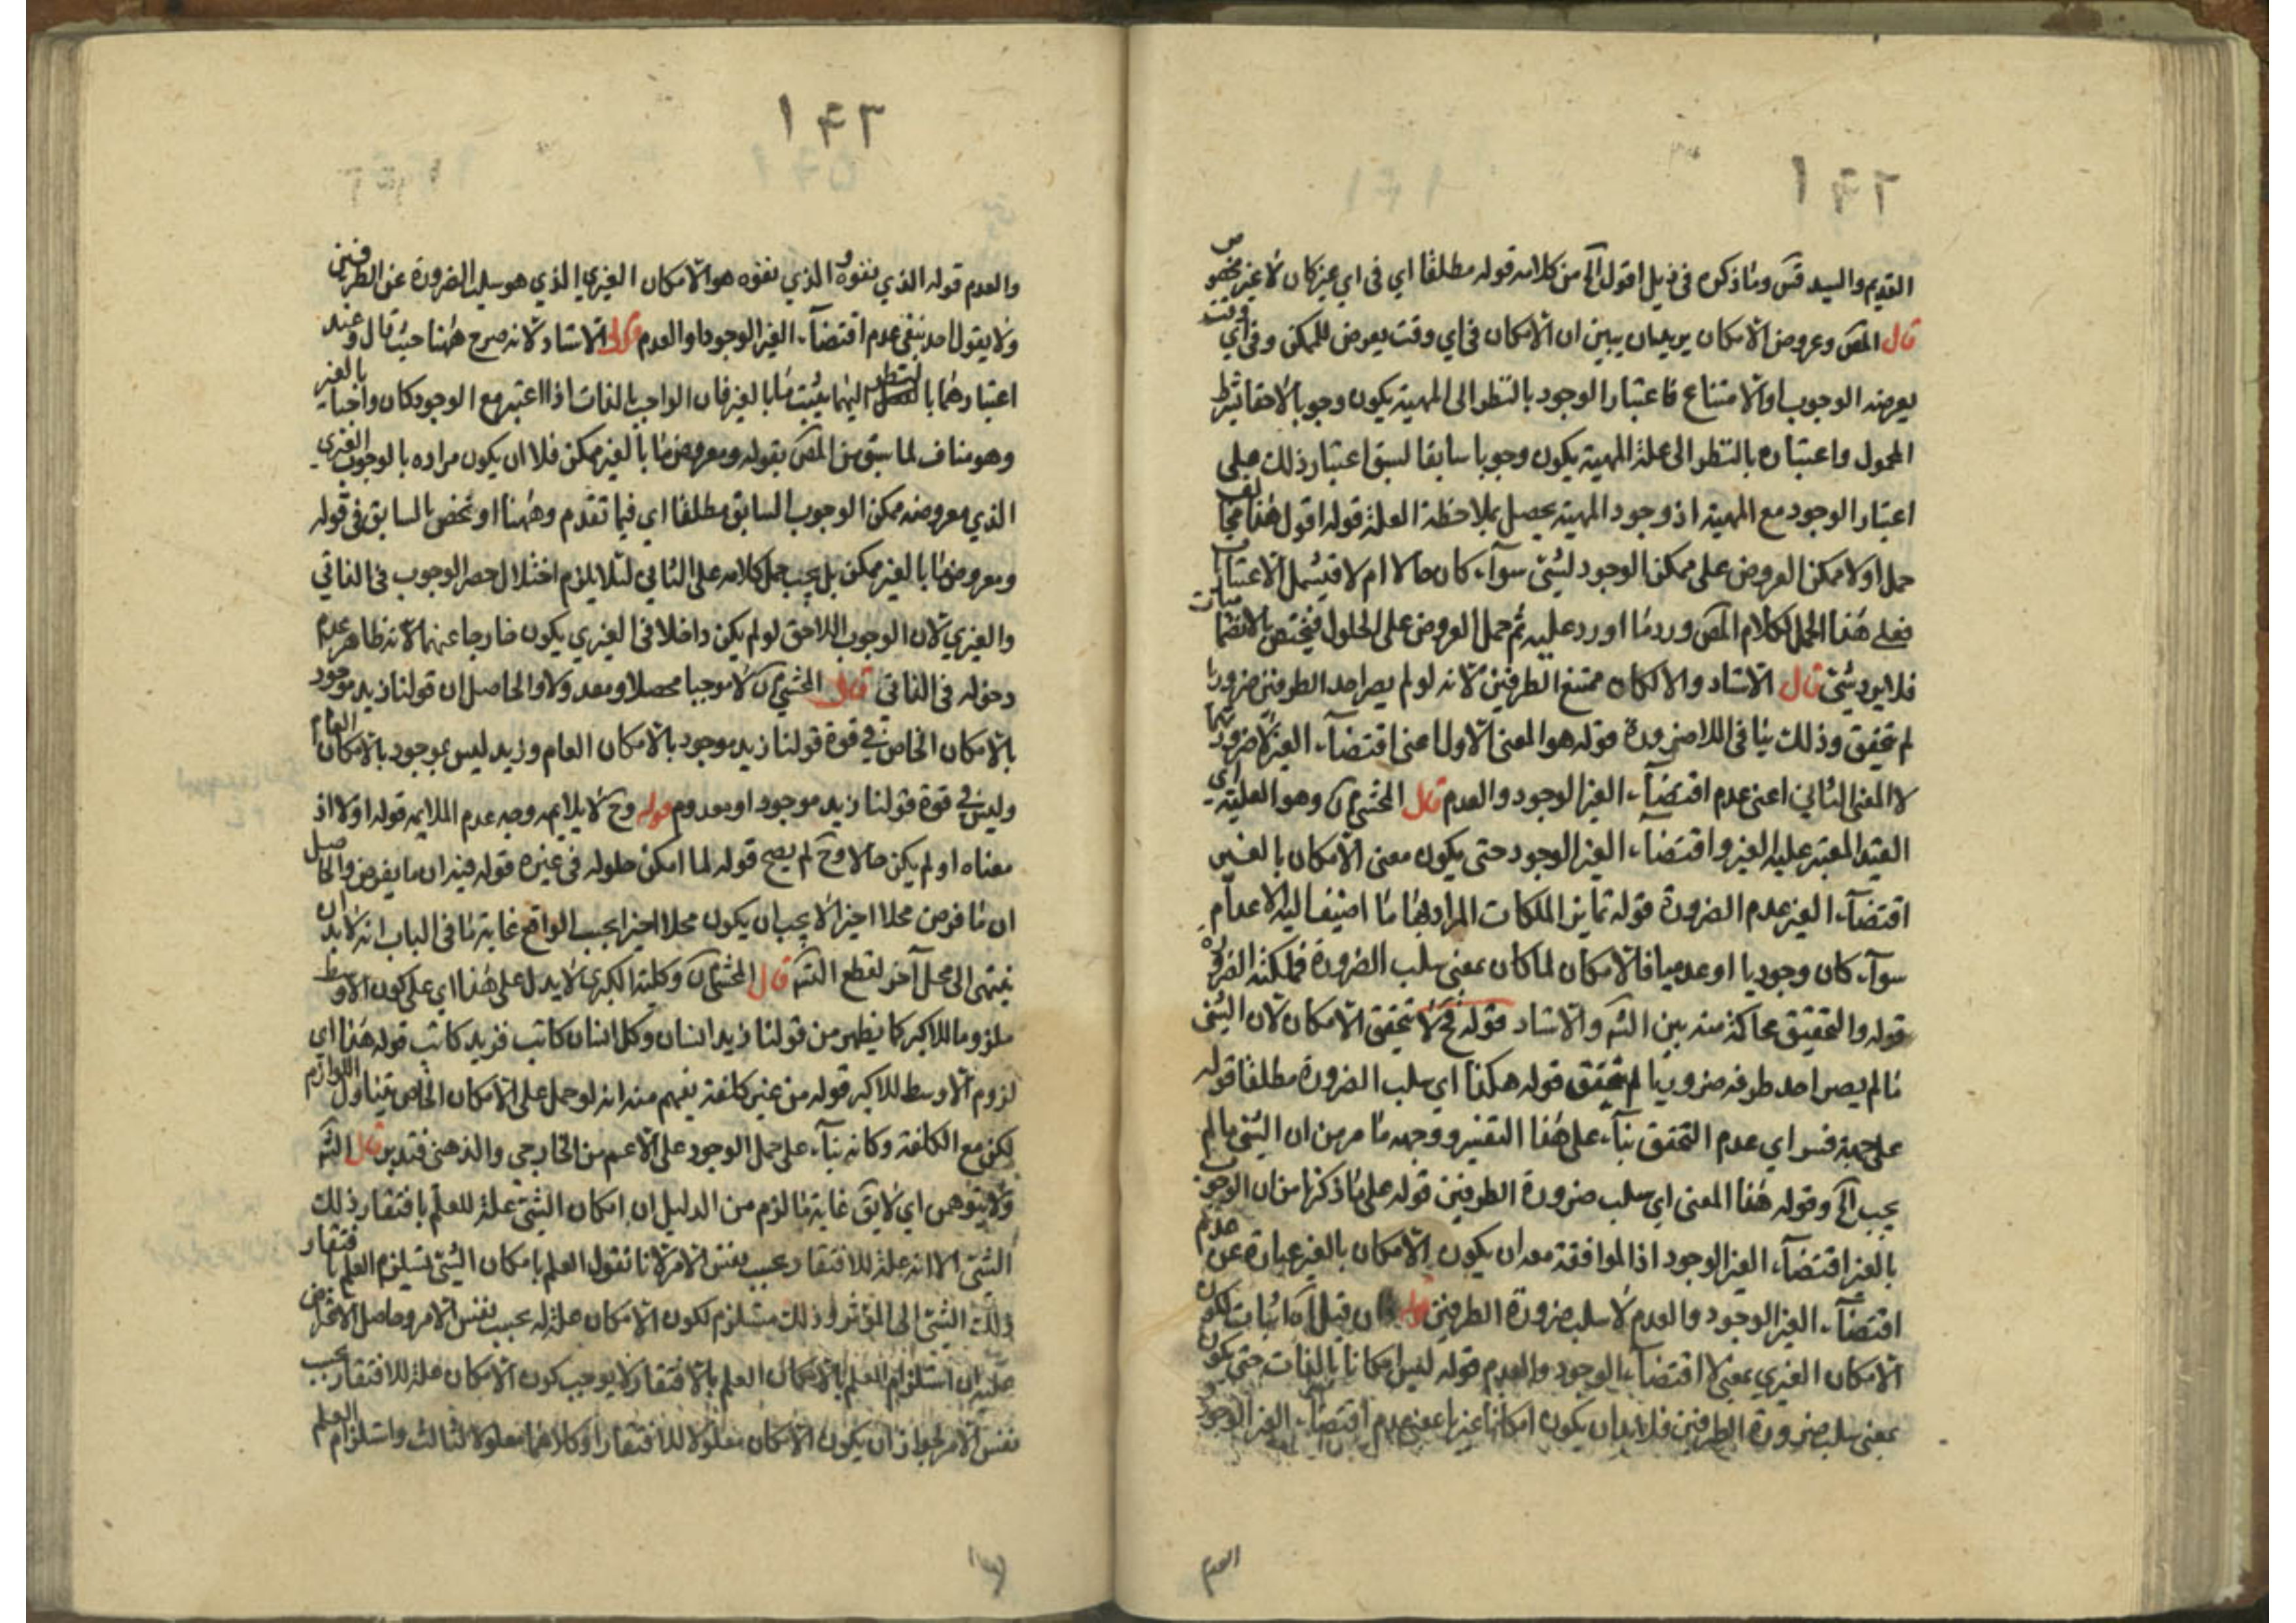 القديم والسيد قس وما ذكره في ذيل اقول الخ من كلامه قوله مطلقا اي في اي غير كان لا غير مخصوص
قال المص وعروض الامكان يريد ان يبين ان الامكان في اي وقت يعرض للممكن وفي اي وقت
يعرضه الوجوب او الامتناع فاعتبار الوجود بالنظر الى المهية يكون وجوبا لاحقا بشرط
المحمول واعتباره بالنظر الى علة المهية يكون وجوبا سابقا لسبق اعتبار ذلك على
اعتبار الوجود مع المهية اذ وجود المهية يحصل بملاحظة العلة قوله اقول هذا
حمل اولا ممكن العروض على ممكن الوجود لشئ سوآء كان حالا ام لا فيشمل الاعتبارات
فعلى هذا الحمل لكلام المص ورد ما اورد عليه ثم حمل العروض على الحلول فيختص
فلا يرد شئ قال الاستاد والا لكان ممتنع الطرفين لانه لو لم يصر احد الطرفين ضروريا
لم يتحقق وذلك ينافي اللاضرورة قوله هو المعنى الاول اعنى اقتضآء الغير
لا المعنى الثاني اعنى عدم اقتضآء الغير الوجود والعدم قال المحشي وهو العلية اي
القيد المعتبر عليه الغير واقتضآء الغير الوجود حتى يكون معنى الامكان بالغير
اقتضآء الغير عدم الضرورة قوله تمايز الملكات المراد بها ما اضيف اليه الاعدام
سوآء كان وجوديا او عدميا فالامكان لما كان بمعنى سلب الضرورة فملكته الضرورة
قوله والتحقيق محاكمة منه بين الش والاستاد قوله فح لا تحقق الامكان لان الشئ
ما لم يصر احد طرفيه ضروريا لم يتحقق قوله هكذا اي سلب الضرورة مطلقا قوله
على جهة فسر اي عدم التحقق بنآء على هذا التفسير ووجهه ما مر من ان الشئ ما لم
يجب الخ وقوله هذا المعنى اي سلب ضرورة الطرفين قوله على ما ذكرنا من ان الوجوب
بالغير اقتضآء الغير الوجود اذ الموافقة معه ان يكون الامكان بالغير عبارة عن عدم
اقتضآء الغير الوجود والعدم لا سلب ضرورة الطرفين قوله ان قيل اه اثبات لكون
الامكان الغيري بمعنى لا اقتضآء الوجود والعدم قوله ليس امكانا بالذات حتى يكون
بمعنى سلب ضرورة الطرفين فلا بد ان يكون امكانا غيريا بمعنى عدم اقتضآء الغير الوجود
العدم
والعدم قوله الذي نفوه الذي نفوه هو الامكان الغيري الذي هو سلب الضرورة عن الطرفين
ولا يقول احد بنفي عدم اقتضآء الغير الوجود او العدم قال الاستاد لانه صرح ههنا حيث قال وعند
اعتبارهما بالنظر اليهما يثبت ما بالغير فان الواجب بالذات اذا اعتبر مع الوجود كان واجبا بالغير
وهو مناف لما سبق من المص بقوله ومعروض ما بالغير ممكن فلا ان يكون مراده بالوجوب الغيري
الذي معروضه ممكن الوجوب السابق مطلقا اي فيما تقدم وههنا او نخص بالسابق في قوله
ومعروض ما بالغير ممكن بل يجب حمل كلامه على الثاني لئلا يلزم اختلال حصر الوجوب في الذاتي
والغيري لان الوجوب اللاحق لو لم يكن داخلا في الغيري يكون خارجا عنهما لانه ظاهر عدم
دخوله في الذاتي قال المحشي لا موجبا محصلا ومعدولا والحاصل ان قولنا زيد موجود
بالامكان الخاص في قوة قولنا زيد موجود بالامكان العام وزيد ليس بموجود بالامكان العام
وليس في قوة قولنا زيد موجود او معدوم قوله وح لا يلايمه وجه عدم الملايمة قوله اولا اذ
معناه او لم يكن حالا وح لم يصح قوله لما امكن حلوله في غيره قوله فيه ان ما يفرض والحاصل
ان ما فرض محلا اخيرا لا يجب ان يكون محلا اخيرا بحسب الواقع غاية ما في الباب انه لا بد ان
ينتهي الى محل آخر لقطع التس قال المحشي وكلية الكبرى لا يدل على هذا اي على كون الاوسط
ملزوما للاكبر كما يظهر من قولنا زيد انسان وكل انسان كاتب فزيد كاتب قوله هذا اي
لزوم الاوسط للاكبر قوله من غير كلفة يفهم منه انه لو حمل على الامكان الخاص يتناول اللوازم
لكن مع الكلفة وكانه بنآء على حمل الوجود على الاعم من الخارجي والذهني فتدبر قال الش
ولا يتوهمن اي لا يق غاية ما لزم من الدليل ان امكان الشئ علة للعلم بافتقار ذلك
الشئ لا انه علة للافتقار بحسب نفس الامر لانا نقول العلم بامكان الشئ يستلزم العلم بافتقار
ذلك الشئ الى المؤثر وذلك مستلزم لكون الامكان علة له بحسب نفس الامر وحاصل الاعتراض
عليه ان استلزام العلم بالامكان العلم بالافتقار لا يوجب كون الامكان علة للافتقار بحسب
نفس الامر لجواز ان يكون الامكان معلولا للافتقار او كلاهما معلولا لثالث واستلزام العلم